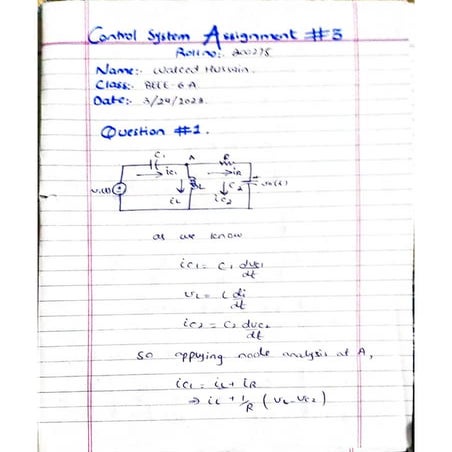 Control System Assignment #3
Roll no:- 200278
Name:- Waleed Hussain.
Class:- BEEE-6A
Date:- 3/24/2023.
Question #1.
C1 A R
iC1 iR
Vi(t) L C2 Vo(t)
iL iC2
as we know
iC1 = C1 dvC1/dt
vL = L di/dt
iC2 = C2 dvC2/dt
so applying node analysis at A,
iC1 = iL + iR
⇒ iL + 1/R (vL - vC2)